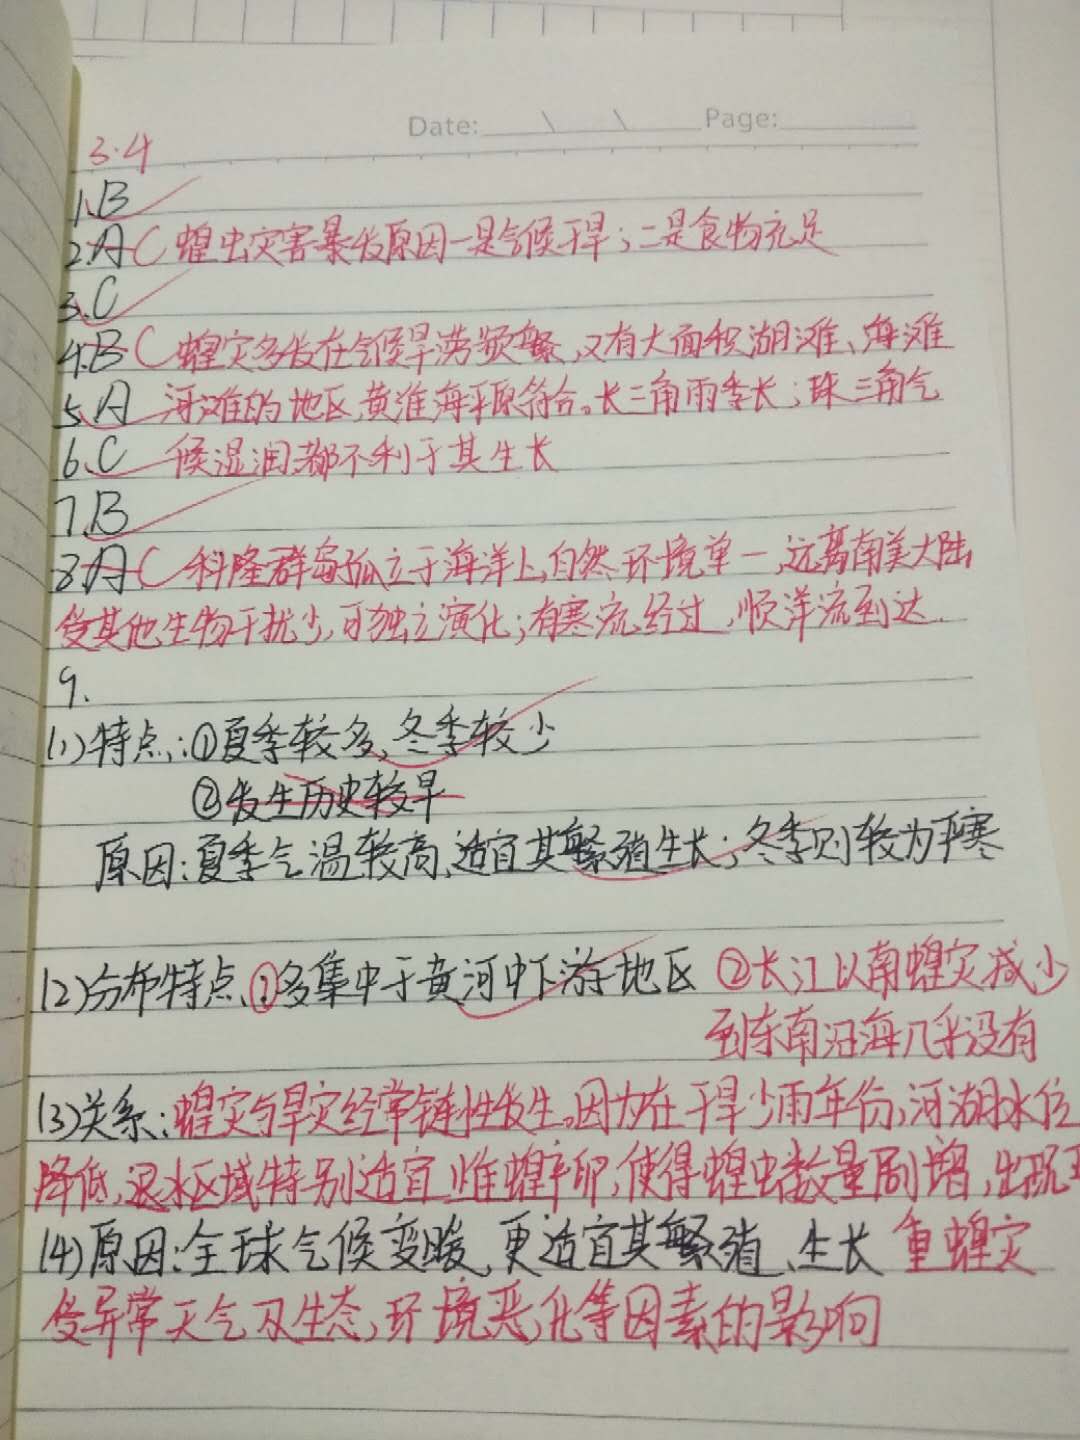 Date: \ \ Page:
3.4
1.B
2.A C 蝗虫灾害暴发原因一是气候干旱;二是食物充足
3.C
4.B C 蝗灾多发在气候旱涝频繁,又有大面积湖滩、海滩
5.A 河滩的地区,黄淮海平原符合。长三角雨季长;珠三角气
6.C 候湿润都不利于其生长
7.B
8.A C 科隆群岛孤立于海洋上,自然环境单一,远离南美大陆
受其他生物干扰少,可独立演化;有寒流经过,顺洋流到达.
9.
(1)特点:①夏季较多,冬季较少
②发生历史较早
原因:夏季气温较高,适宜其繁殖生长;冬季则较为干寒
(2)分布特点、①多集中于黄河中下游地区 ②长江以南蝗灾减少
到东南沿海几乎没有
(3)关系:蝗灾与旱灾经常链性发生。因为在干旱少雨年份,河湖水位
降低,退水区域特别适宜雌蝗产卵,使得蝗虫数量剧增,出现
(4)原因:全球气候变暖,更适宜其繁殖、生长 重蝗灾
受异常天气及生态,环境恶化等因素的影响